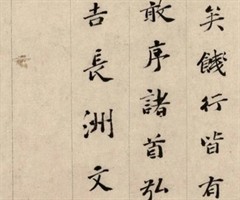 矣餞行皆有
敢序諸首弘
吉長洲文